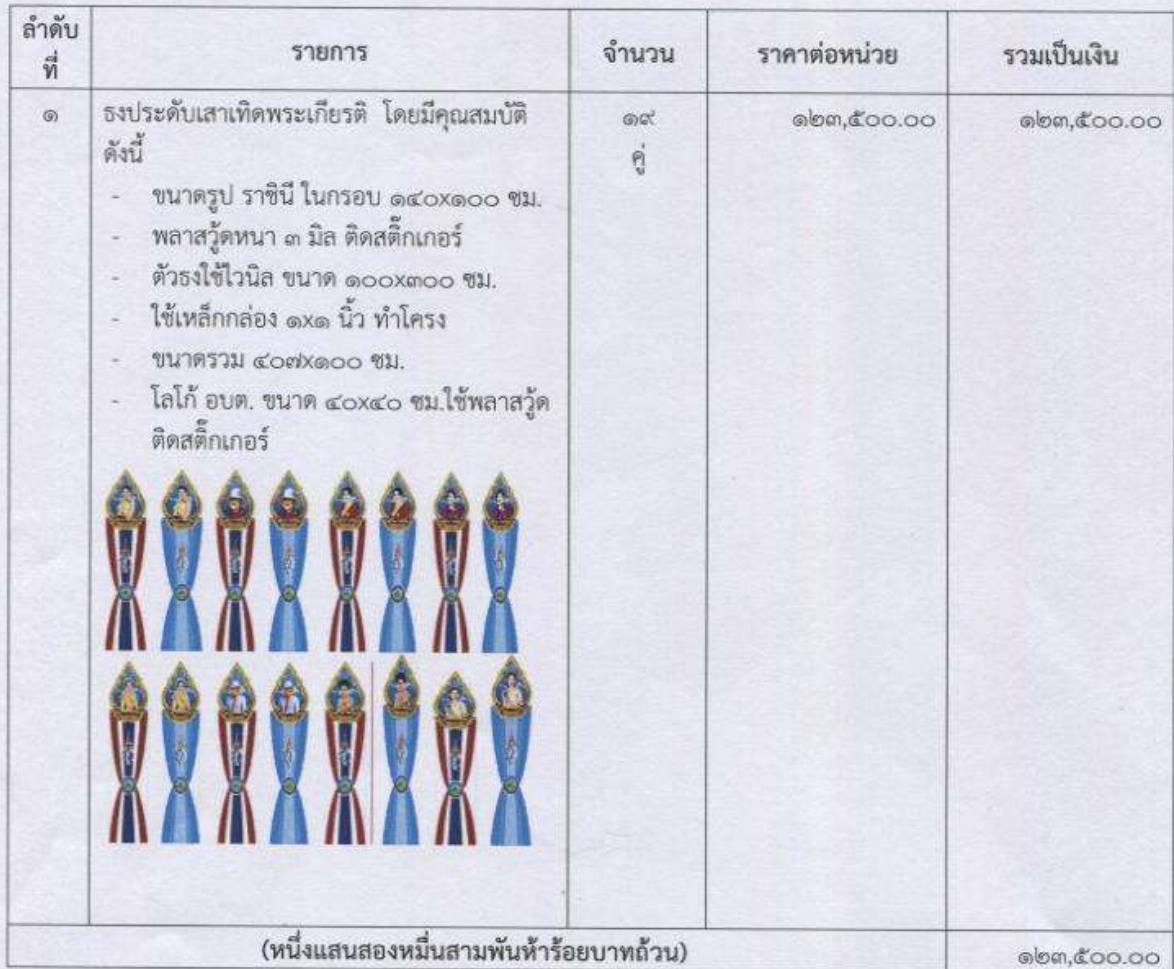 ลำดับ
ที่
รายการ
จำนวน
ราคาต่อหน่วย
รวมเป็นเงิน
๑
ธงประดับเสาเทิดพระเกียรติ โดยมีคุณสมบัติ
ดังนี้
- ขนาดรูป ราชินี ในกรอบ ๑๔๐X๑๐๐ ซม.
- พลาสวู้ดหนา ๓ มิล ติดสติ๊กเกอร์
- ตัวธงใช้ไวนิล ขนาด ๑๐๐X๓๐๐ ซม.
- ใช้เหล็กกล่อง ๑X๑ นิ้ว ทำโครง
- ขนาดรวม ๔๐๗X๑๐๐ ซม.
- โลโก้ อบต. ขนาด ๔๐X๔๐ ซม.ใช้พลาสวู้ด
ติดสติ๊กเกอร์
๑๙
คู่
๑๒๓,๕๐๐.๐๐
๑๒๓,๕๐๐.๐๐
(หนึ่งแสนสองหมื่นสามพันห้าร้อยบาทถ้วน)
๑๒๓,๕๐๐.๐๐